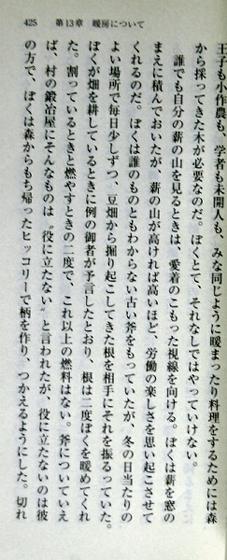 425　第13章　暖房について
王子も小作農も、学者も未開人も、みな同じように暖まったり料理をするためには森
から採ってきた木が必要なのだ。ぼくとて、それなしではやっていけない。
　誰でも自分の薪の山を見るときは、愛着のこもった視線を向ける。ぼくは薪を窓の
まえに積んでおいたが、薪の山が高ければ高いほど、労働の楽しさを思い起こさせて
くれるのだ。ぼくは誰のものともわからない古い斧をもっていたが、冬の日当たりの
よい場所で毎日少しずつ、豆畑から掘り起こしてきた根を相手にそれを振るっていた。
ぼくが畑を耕しているときに例の御者が予言したとおり、根は二度ぼくを暖めてくれ
た。割っているときと燃やすときの二度で、これ以上の燃料はない。斧についていえ
ば、村の鍛冶屋にそんなものは〝役に立たない〟と言われたが、役に立たないのは彼
の方で、ぼくは森からもち帰ったヒッコリーで柄を作り、つかえるようにした。切れ